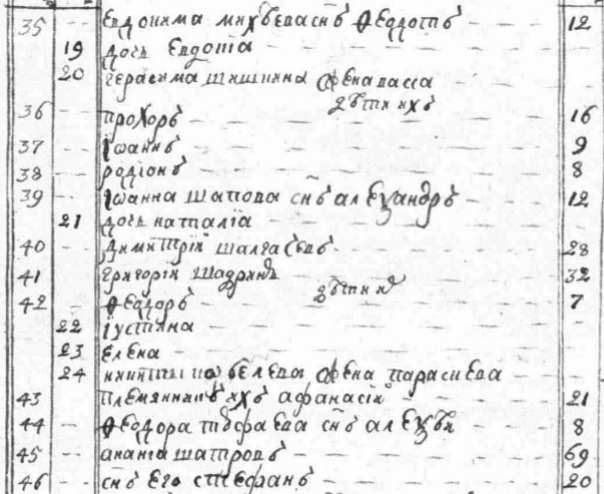 35 Евдокима михѣева снъ Ѳедотъ 12
19 дочь Евдотіа
20 герасима жена васса
дѣти ихъ
36 прохоръ 16
37 Іѡаннъ 9
38 родіонъ 8
39 Іѡанна шапова снъ алеѯандръ 12
21 дочь наталіа
40 Димитріи 28
41 григоріи шадринъ 32
дѣти ихъ
42 Ѳеодоръ 7
22 іустина
23 Елена
24 жена парасцева
43 племянникъ ихъ афанасіи 21
44 Ѳеодора снъ алеѯѣи 8
45 ананіа шатровъ 69
46 снъ Его стефанъ 20